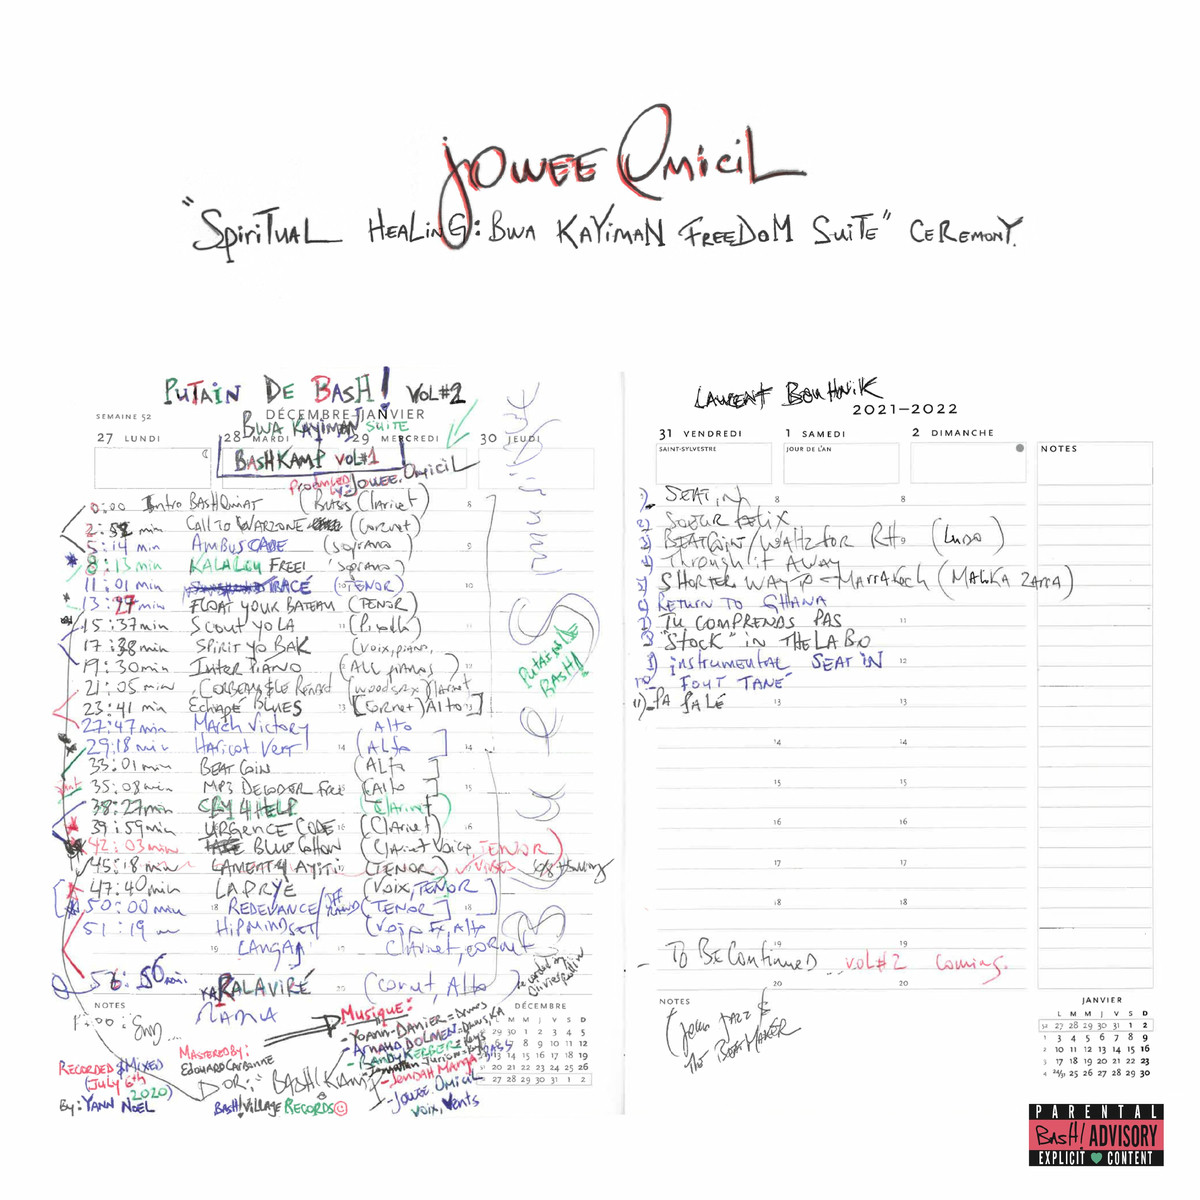 Jowee Omicil
"Spiritual Healing: Bwa Kayiman Freedom Suite" Ceremony.
Putain de Bash! Vol#2
SEMAINE 52
DÉCEMBRE-JANVIER
Bwa Kayiman Suite
27 LUNDI
28 MARDI
29 MERCREDI
30 JEUDI
BASHKAMP Vol#1
Produced by: Jowee Omicil
0:00 Intro BashOmiat (Bass Clarinet) 8
2:52 min Call to Warzone (Cornet)
5:14 min Ambuscade (Soprano) 9
8:13 min Kalalou Free! (Soprano)
11:01 min Tracé (Tenor) 10
13:27 min Float your Bateau (Tenor)
15:37 min Scout yo la (Piccolo) 11
17:38 min Spirit yo Bak (voix, piano,
19:30 min Inter Piano (All pianos) 12
21:05 min Corbeau & Le Renard (woods Rx) Clarinet
23:41 min Echapé Blues 13 [Cornet) Alto]
27:47 min March Victory Alto
29:18 min Haricot Vert 14 (Alto] 14
33:01 min Beat Coin (Alto]
35:08 min MP3 Decoder Free (Alto 15
38:27 min Cry 4 Help (Clarinet)
39:59 min Urgence Code 16 (Clarinet) 16
42:03 min Blue Cotton (Clarinet Voice, Tenor)
45:18 min Lament 4 Ayiti (Tenor) Verses
47:40 min LAPRYÈ (Voix, Tenor
50:00 min 18 Redevance/ (Tenor] 18
51:19 m Hip Mindset/ (Voix Fx, Alto
19 Langaj Clarinet, cornet
56:56 min. KaRalaviré (Cornut, Alto)
Mama
Putain de Bash!
NOTES
Musique:
- Yoann Danier = Drums
- Arnaud Dolmen = Drums, KA
- Randy Kerber = Keys
- Jonathan Jurion =
- Jendah Manga = Bass
- Jowee Omicil
Voix, Vents
Recorded & Mixed
(July 6th 2020)
By: Yann Noel
Mastered by:
Edouard Carbonne
Dor: "Bash! Kamp"
Bash! Village Records ©
DÉCEMBRE
L M M J V S D
29 30 1 2 3 4 5
6 7 8 9 10 11 12
13 14 15 16 17 18 19
20 21 22 23 24 25 26
27 28 29 30 31 1 2
Laurent Bouhnik
2021–2022
31 VENDREDI
1 SAMEDI
2 DIMANCHE
SAINT-SYLVESTRE
JOUR DE L'AN
NOTES
1) Seat in 8 8
2) Soeur Felix
3) Beatcoin/Waltz for RH, (Ludo)
4) Through it Away
5) Shorter Way to Marrakech (Malika Zarra)
6) Return to Ghana
7) Tu Comprends Pas 11
8) "Stock" in the Labo
9) instrumental Seat in 12
10) Fout Tané
11) Pa Palé 13 13
14 14
15 15
16 16
17 17
18 18
19 19
- To Be Continued... vol#2 coming.
20 20
NOTES
(John Jazz &
The Beat Maker
JANVIER
L M M J V S D
52 27 28 29 30 31 1 2
1 3 4 5 6 7 8 9
2 10 11 12 13 14 15 16
3 17 18 19 20 21 22 23
4 24/31 25 26 27 28 29 30
PARENTAL
Bash! ADVISORY
EXPLICIT CONTENT